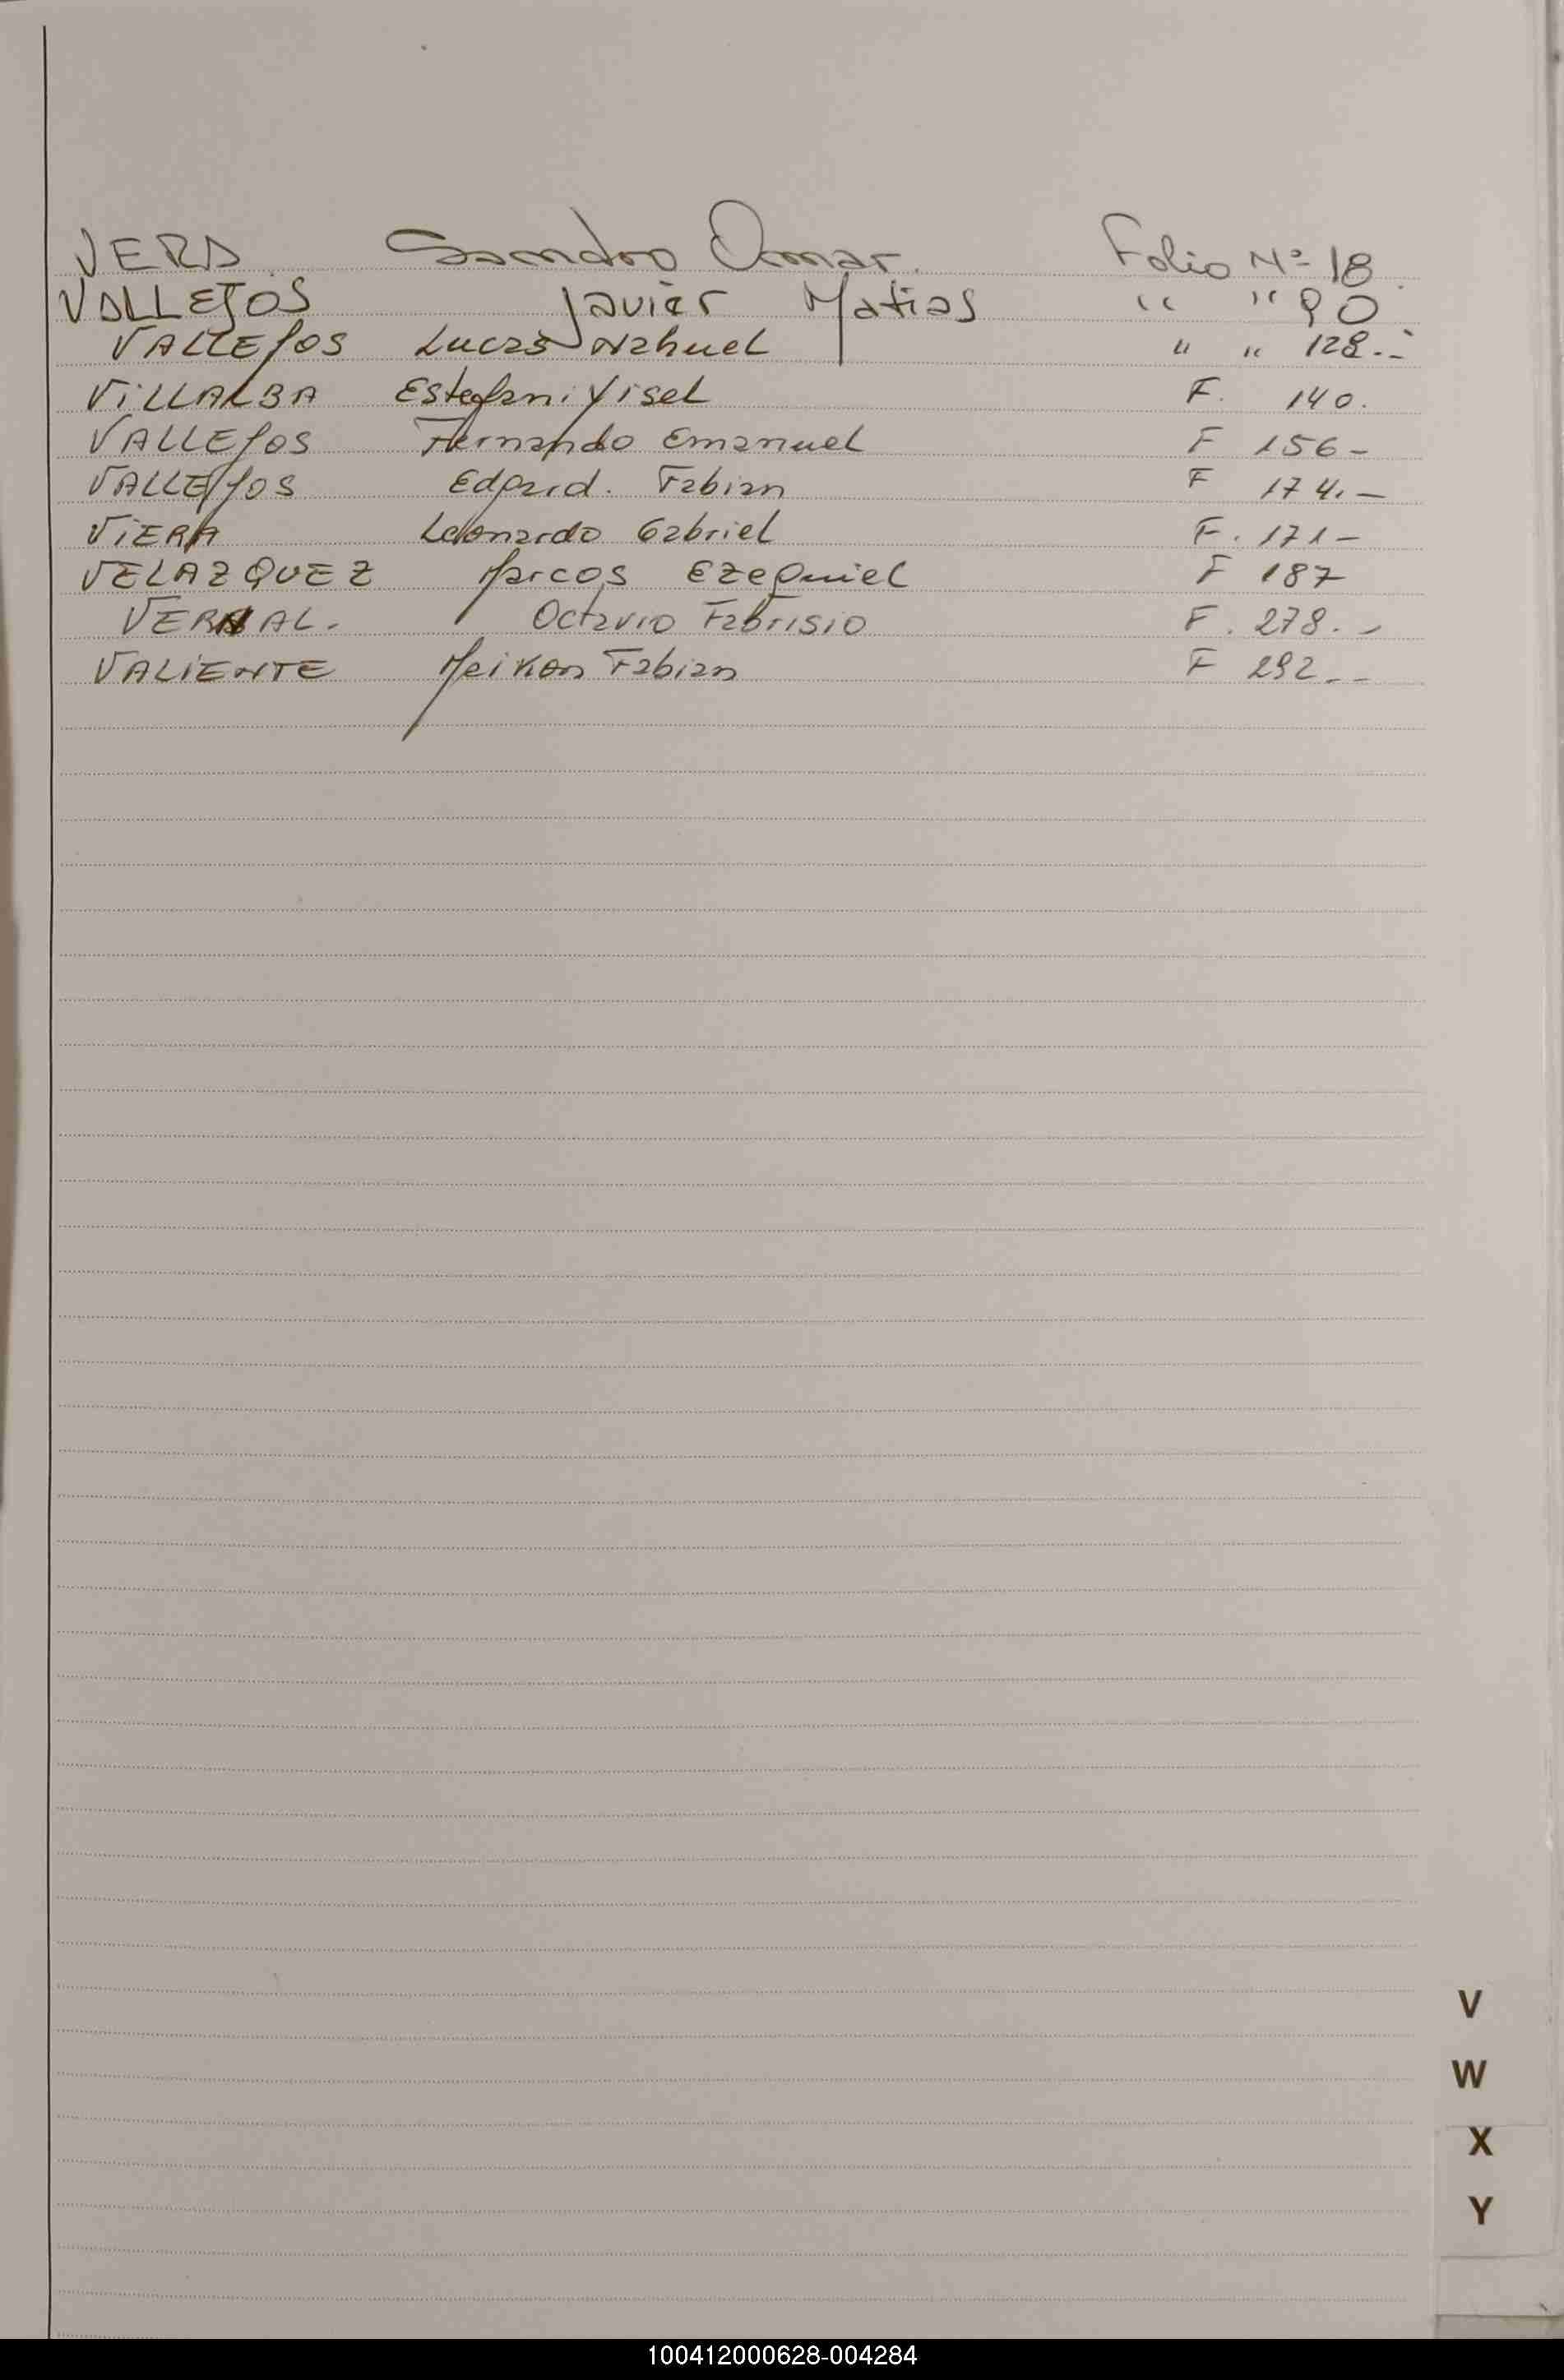 VERA Sandro Omar. Folio Nº 18.
VALLEJOS Javier Matias " " 90
VALLEJOS Lucas Nahuel " " 128.-
VILLALBA Estefani Yisel F. 140.
VALLEJOS Fernando Emanuel F 156-
VALLEJOS Edgard. Fabian F 174.-
VIERA Leonardo Gabriel F. 171-
VELAZQUEZ Marcos Ezequiel F 187
VERNAL. Octavio Fabrisio F. 278.-
VALIENTE Meikon Fabian F 292.--
V
W
X
Y
100412000628-004284